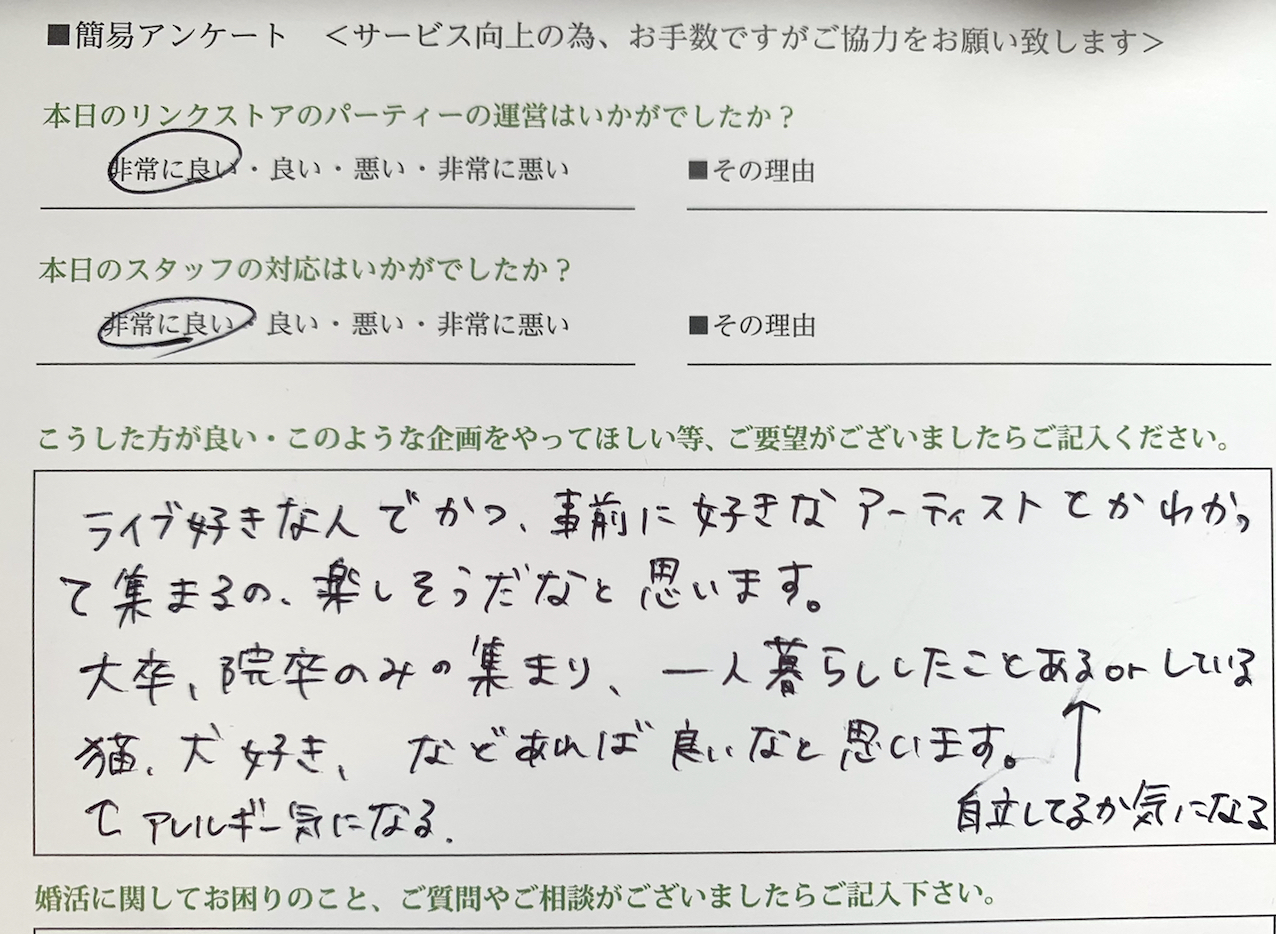 ■簡易アンケート ＜サービス向上の為、お手数ですがご協力をお願い致します＞
本日のリンクストアのパーティーの運営はいかがでしたか？
非常に良い・良い・悪い・非常に悪い ■その理由
本日のスタッフの対応はいかがでしたか？
非常に良い・良い・悪い・非常に悪い ■その理由
こうした方が良い・このような企画をやってほしい等、ご要望がございましたらご記入ください。
ライブ好きな人でかつ、事前に好きなアーティストとかわかっ
て集まるの、楽しそうだなと思います。
大卒、院卒のみの集まり、一人暮らししたことあるorしている
猫、犬好き、などあれば良いなと思います。
↑アレルギー気になる. ↑自立してるか気になる
婚活に関してお困りのこと、ご質問やご相談がございましたらご記入下さい。